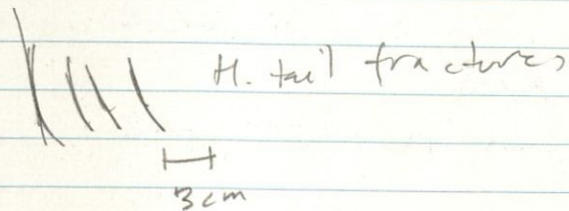 H. tail fractures
3cm